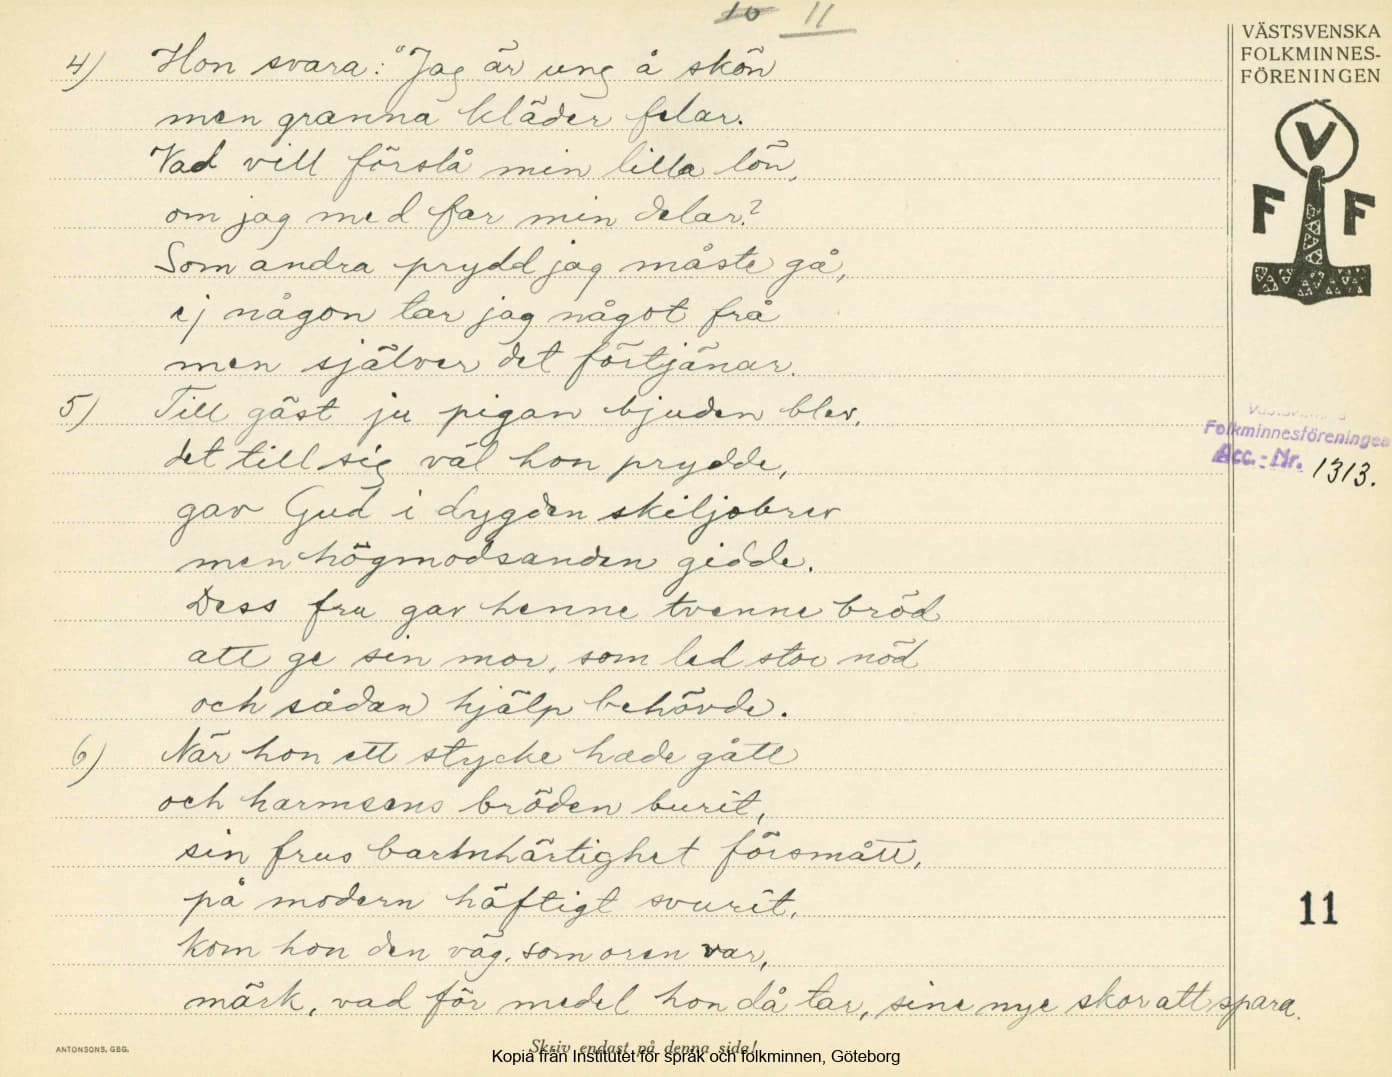 10 11
VÄSTSVENSKA
FOLKMINNES-
FÖRENINGEN
V
F F
4) Hon svara: "Jag är ung å skön
men granna kläder felar.
Vad vill förslå min lilla lön,
om jag med far min delar?
Som andra prydd jag måste gå,
ej någon tar jag något frå
men själver det förtjänar.
5) Till gäst ju pigan bjuden blev,
det till sig väl hon prydde,
gav Gud i dygden skiljobrev
men högmodsanden gidde.
Dess fru gav henne tvenne bröd
att ge sin mor, som led stor nöd
och sådan hjälp behövde.
6) När hon ett stycke hade gått
och harmsens bröden burit,
sin frus barmhärtighet försmått,
på modern häftigt svurit,
kom hon den väg, som oren var,
märk, vad för medel hon då tar, sine nye skor att spara.
Folkminnesföreningen
Acc.-Nr. 1313.
11
ANTONSONS, GBG.
Skriv endast på denna sida!
Kopia från Institutet för språk och folkminnen, Göteborg